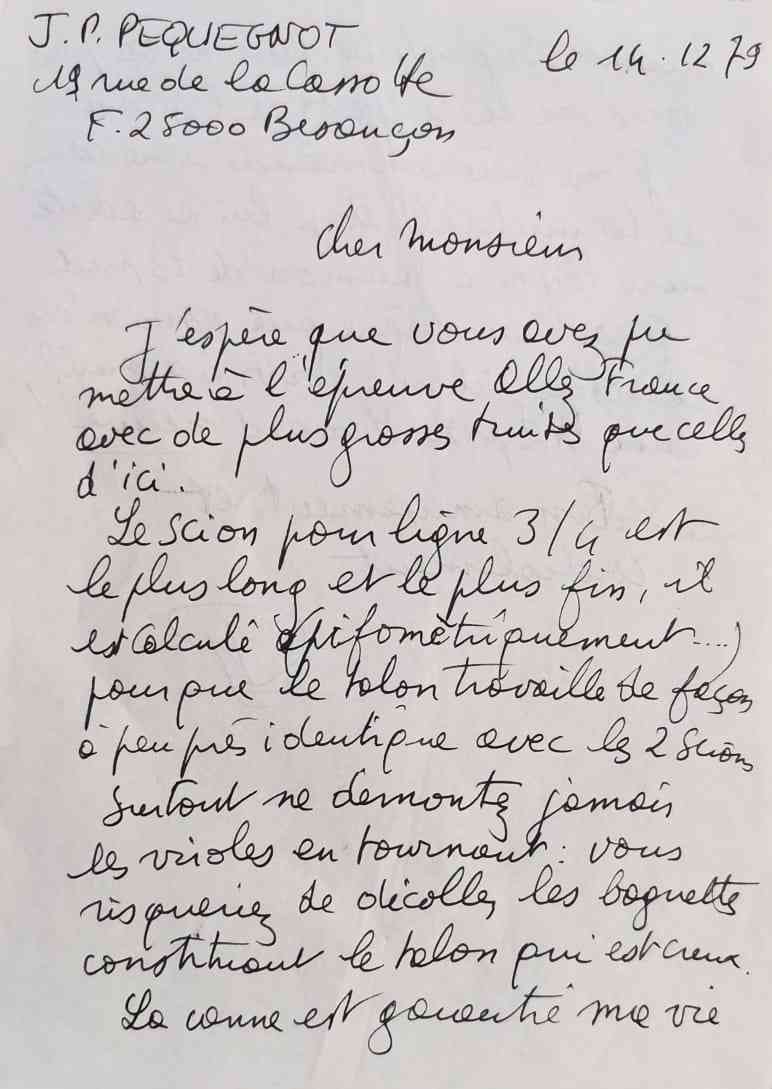 J.P. PEQUEGNOT
19 rue de la Cassotte
F. 25000 Besançon
le 14.12 79
Cher Monsieur
J'espère que vous avez pu
mettre à l'épreuve Allez France
avec de plus grosses truites que celles
d'ici.
Le scion pour ligne 3/4 est
le plus long et le plus fin, il
est calculé (pifomètriquement...)
pour que le talon travaille de façon
à peu près identique avec les 2 scions
Surtout ne démontez jamais
les viroles en tournant : vous
risqueriez de décoller les baguettes
constituant le talon qui est creux.
La canne est garantie ma vie